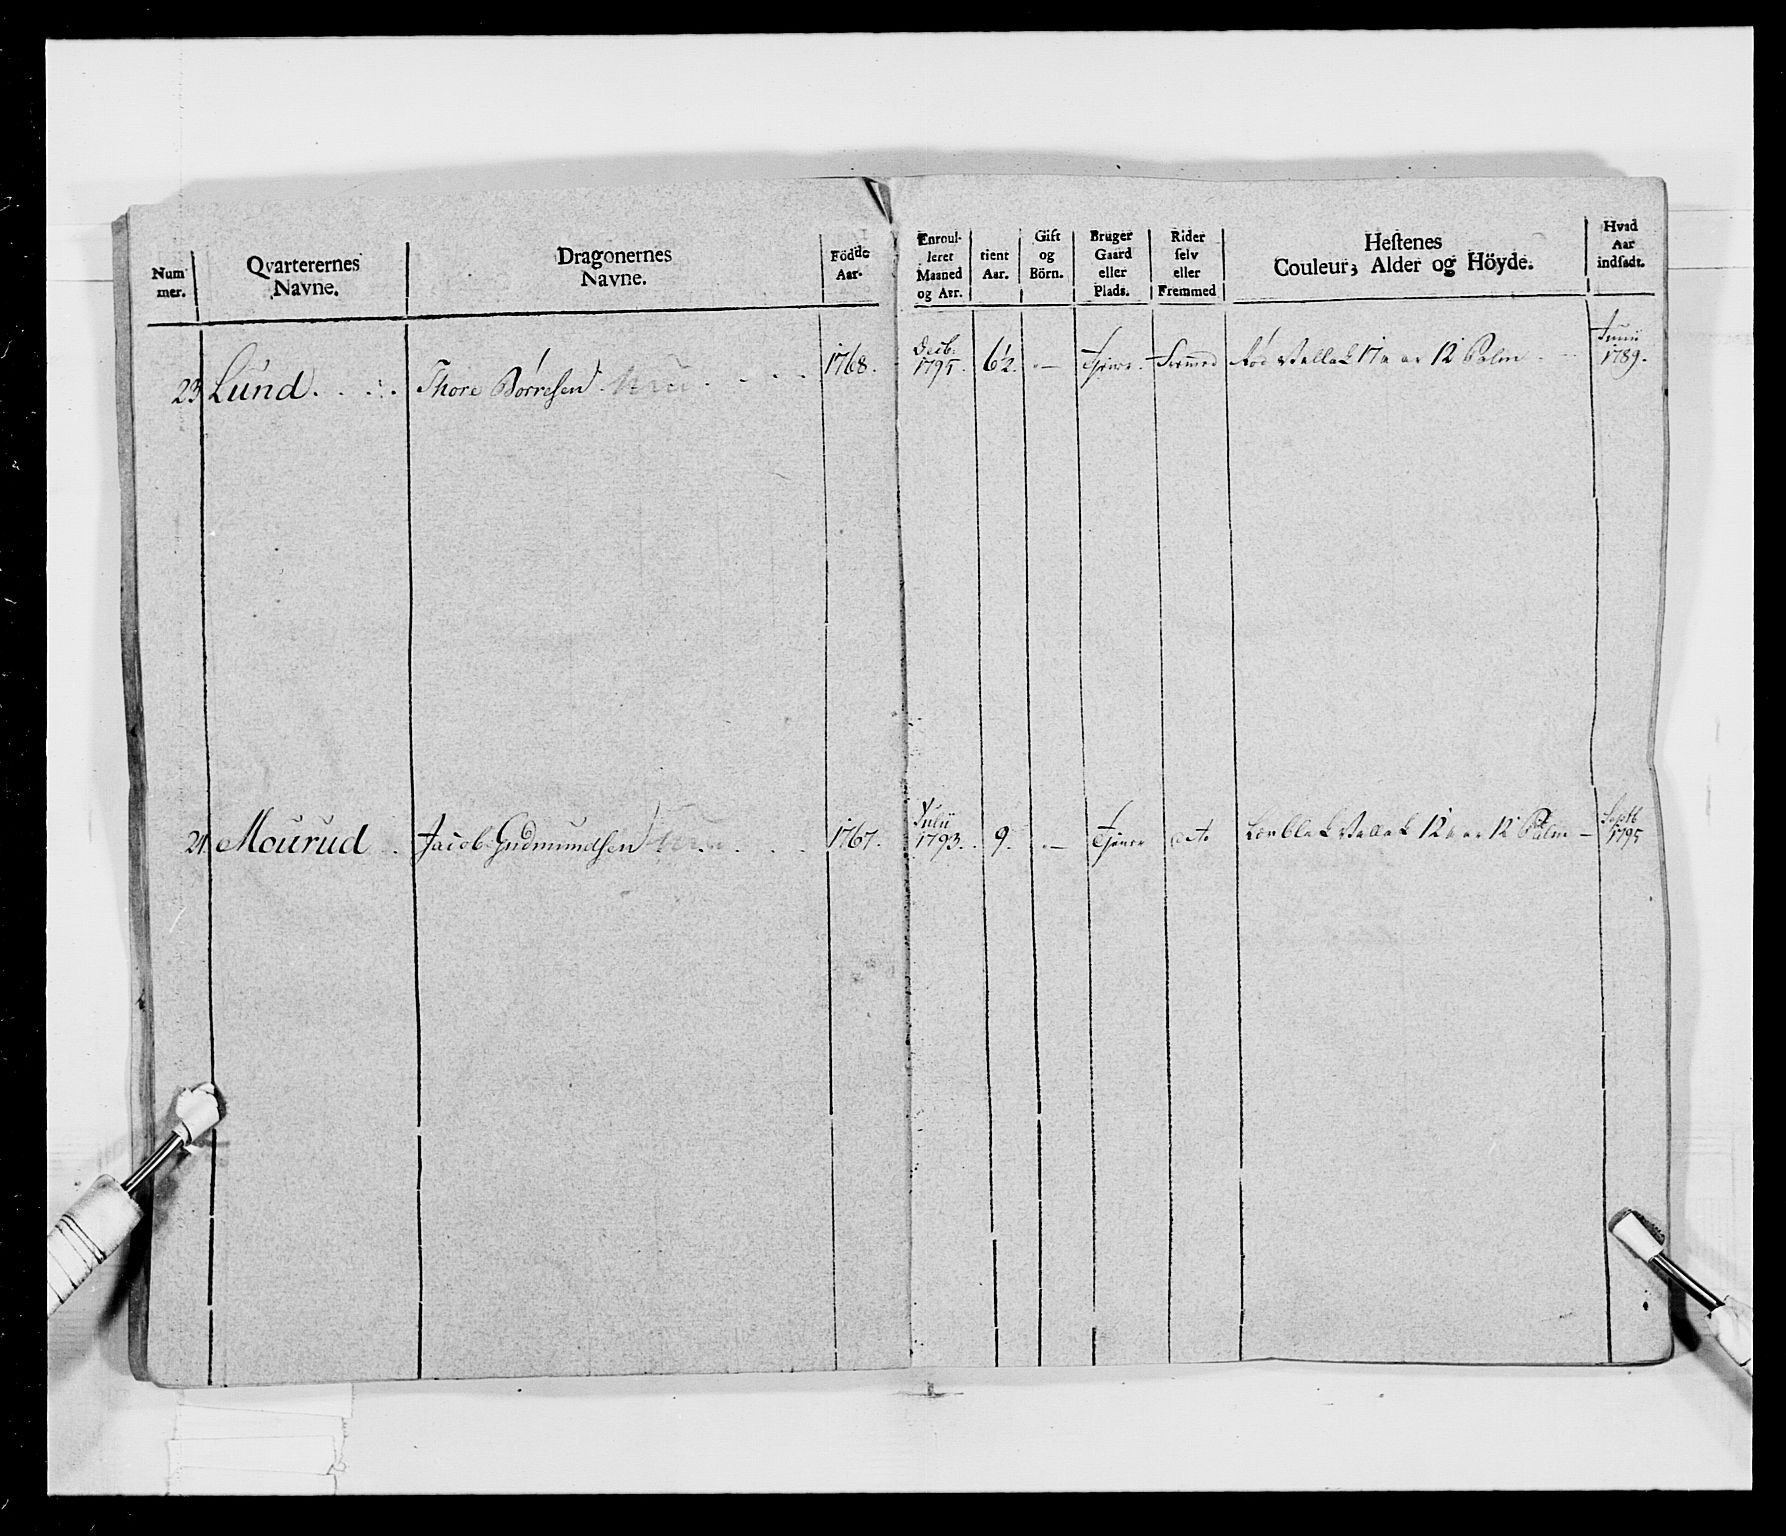 Num
mer.
Qvarterernes
Navne.
Dragonernes
Navne.
Födde
Aar.
Enroul-
leret
Maaned
og Aar.
tient
Aar.
Gift
og
Börn.
Bruger
Gaard
eller
Plads.
Rider
selv
eller
Fremmed
Hestenes
Couleur, Alder og Höyde.
Hvad
Aar
indsadt.
23 Lund Thore Börresen 1768. Decb. 1795. 6½. — Tjener Fremed Rød Vallak 17 aar 12 Palm Junii 1789.
24 Mourud Jacob Gudmundsen 1767. Julii 1793. 9. — Tjener dto Vallak 12 aar 12 Palm — Septb 1795